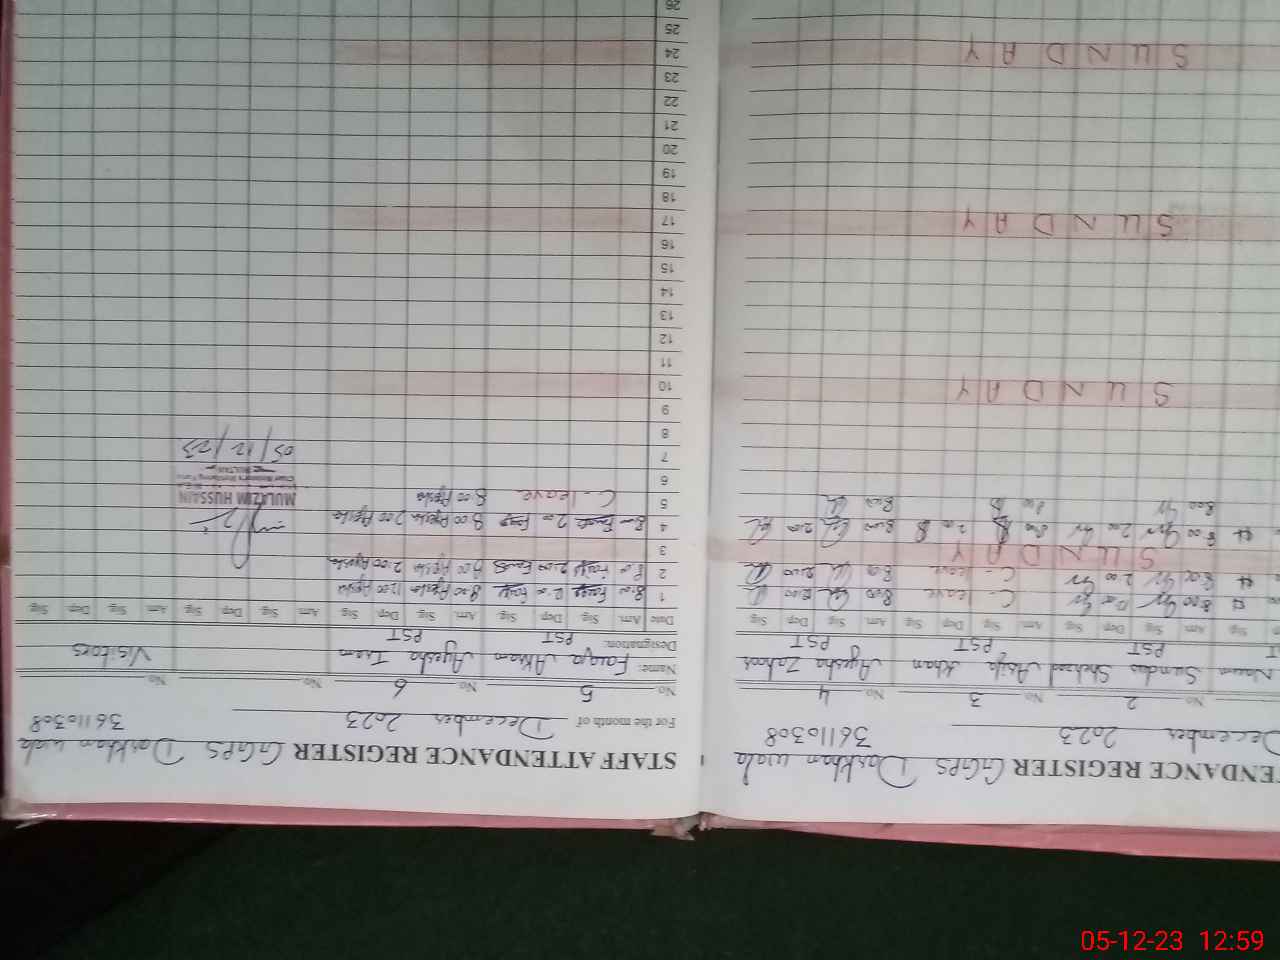 TENDANCE REGISTER GGPS Darkhan wala
December 2023 36110308
No. 2 No. 3 No. 4
Naum Sundas Shehzad Asifa Khan Ayesha Zahoor
PST PST PST
Sig Arr. Sig Dep Sig Arr. Sig Dep Sig Arr. Sig Dep Sig
8:00 C - leave 8:00 12:00
8:00 2:00 C - leave 8:00 2:00
SUNDAY
8:00 2:00 8:00 2:00 8:00 2:00
8:00 8:00 8:00
SUNDAY
SUNDAY
SUNDAY
STAFF ATTENDANCE REGISTER GGPS Darkhan wala
For the month of December 2023 36110308
No. 5 No. 6 No. No.
Name: Fauqya Akram Ayesha Iram Visitors
Designation: PST PST
Date Arr. Sig Dep Sig Arr. Sig Dep Sig Arr. Sig Dep Sig Arr. Sig Dep Sig
1 8:00 8:00 Ayesha 12:00 Ayesha
2 8:00 2:00 8:00 Ayesha 2:00 Ayesha
3
4 8:00 2:00 8:00 Ayesha 2:00 Ayesha
5 C - leave 8:00 Ayesha
MULAZIM HUSSAIN
MULTAN
05/12/23
6
7
8
9
10
11
12
13
14
15
16
17
18
19
20
21
22
23
24
25
26
05-12-23 12:59